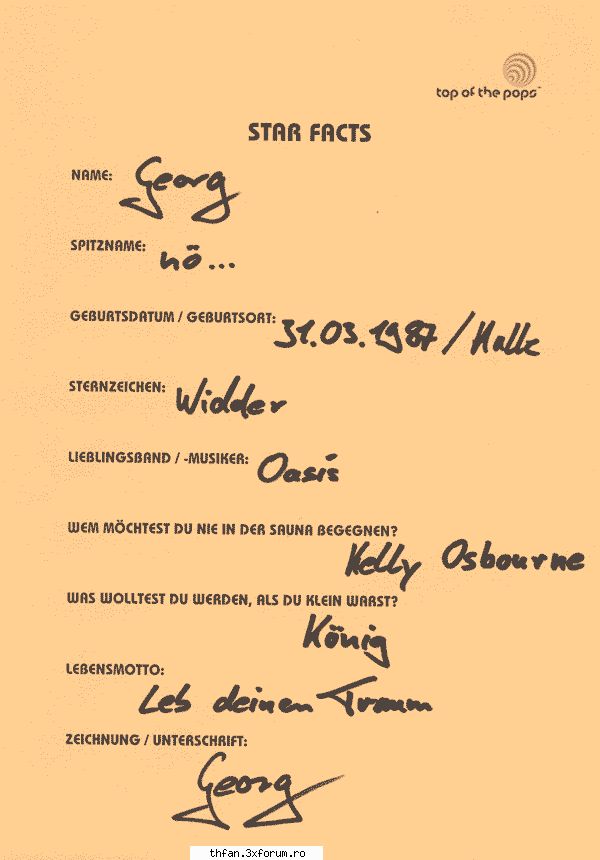 top of the pops
STAR FACTS
NAME: Georg
SPITZNAME: nö...
GEBURTSDATUM / GEBURTSORT: 31.03.1987 / Halle
STERNZEICHEN: Widder
LIEBLINGSBAND / -MUSIKER: Oasis
WEM MÖCHTEST DU NIE IN DER SAUNA BEGEGNEN?
Kelly Osbourne
WAS WOLLTEST DU WERDEN, ALS DU KLEIN WARST?
König
LEBENSMOTTO:
Leb deinen Traum
ZEICHNUNG / UNTERSCHRIFT:
Georg
thfan.3xforum.ro